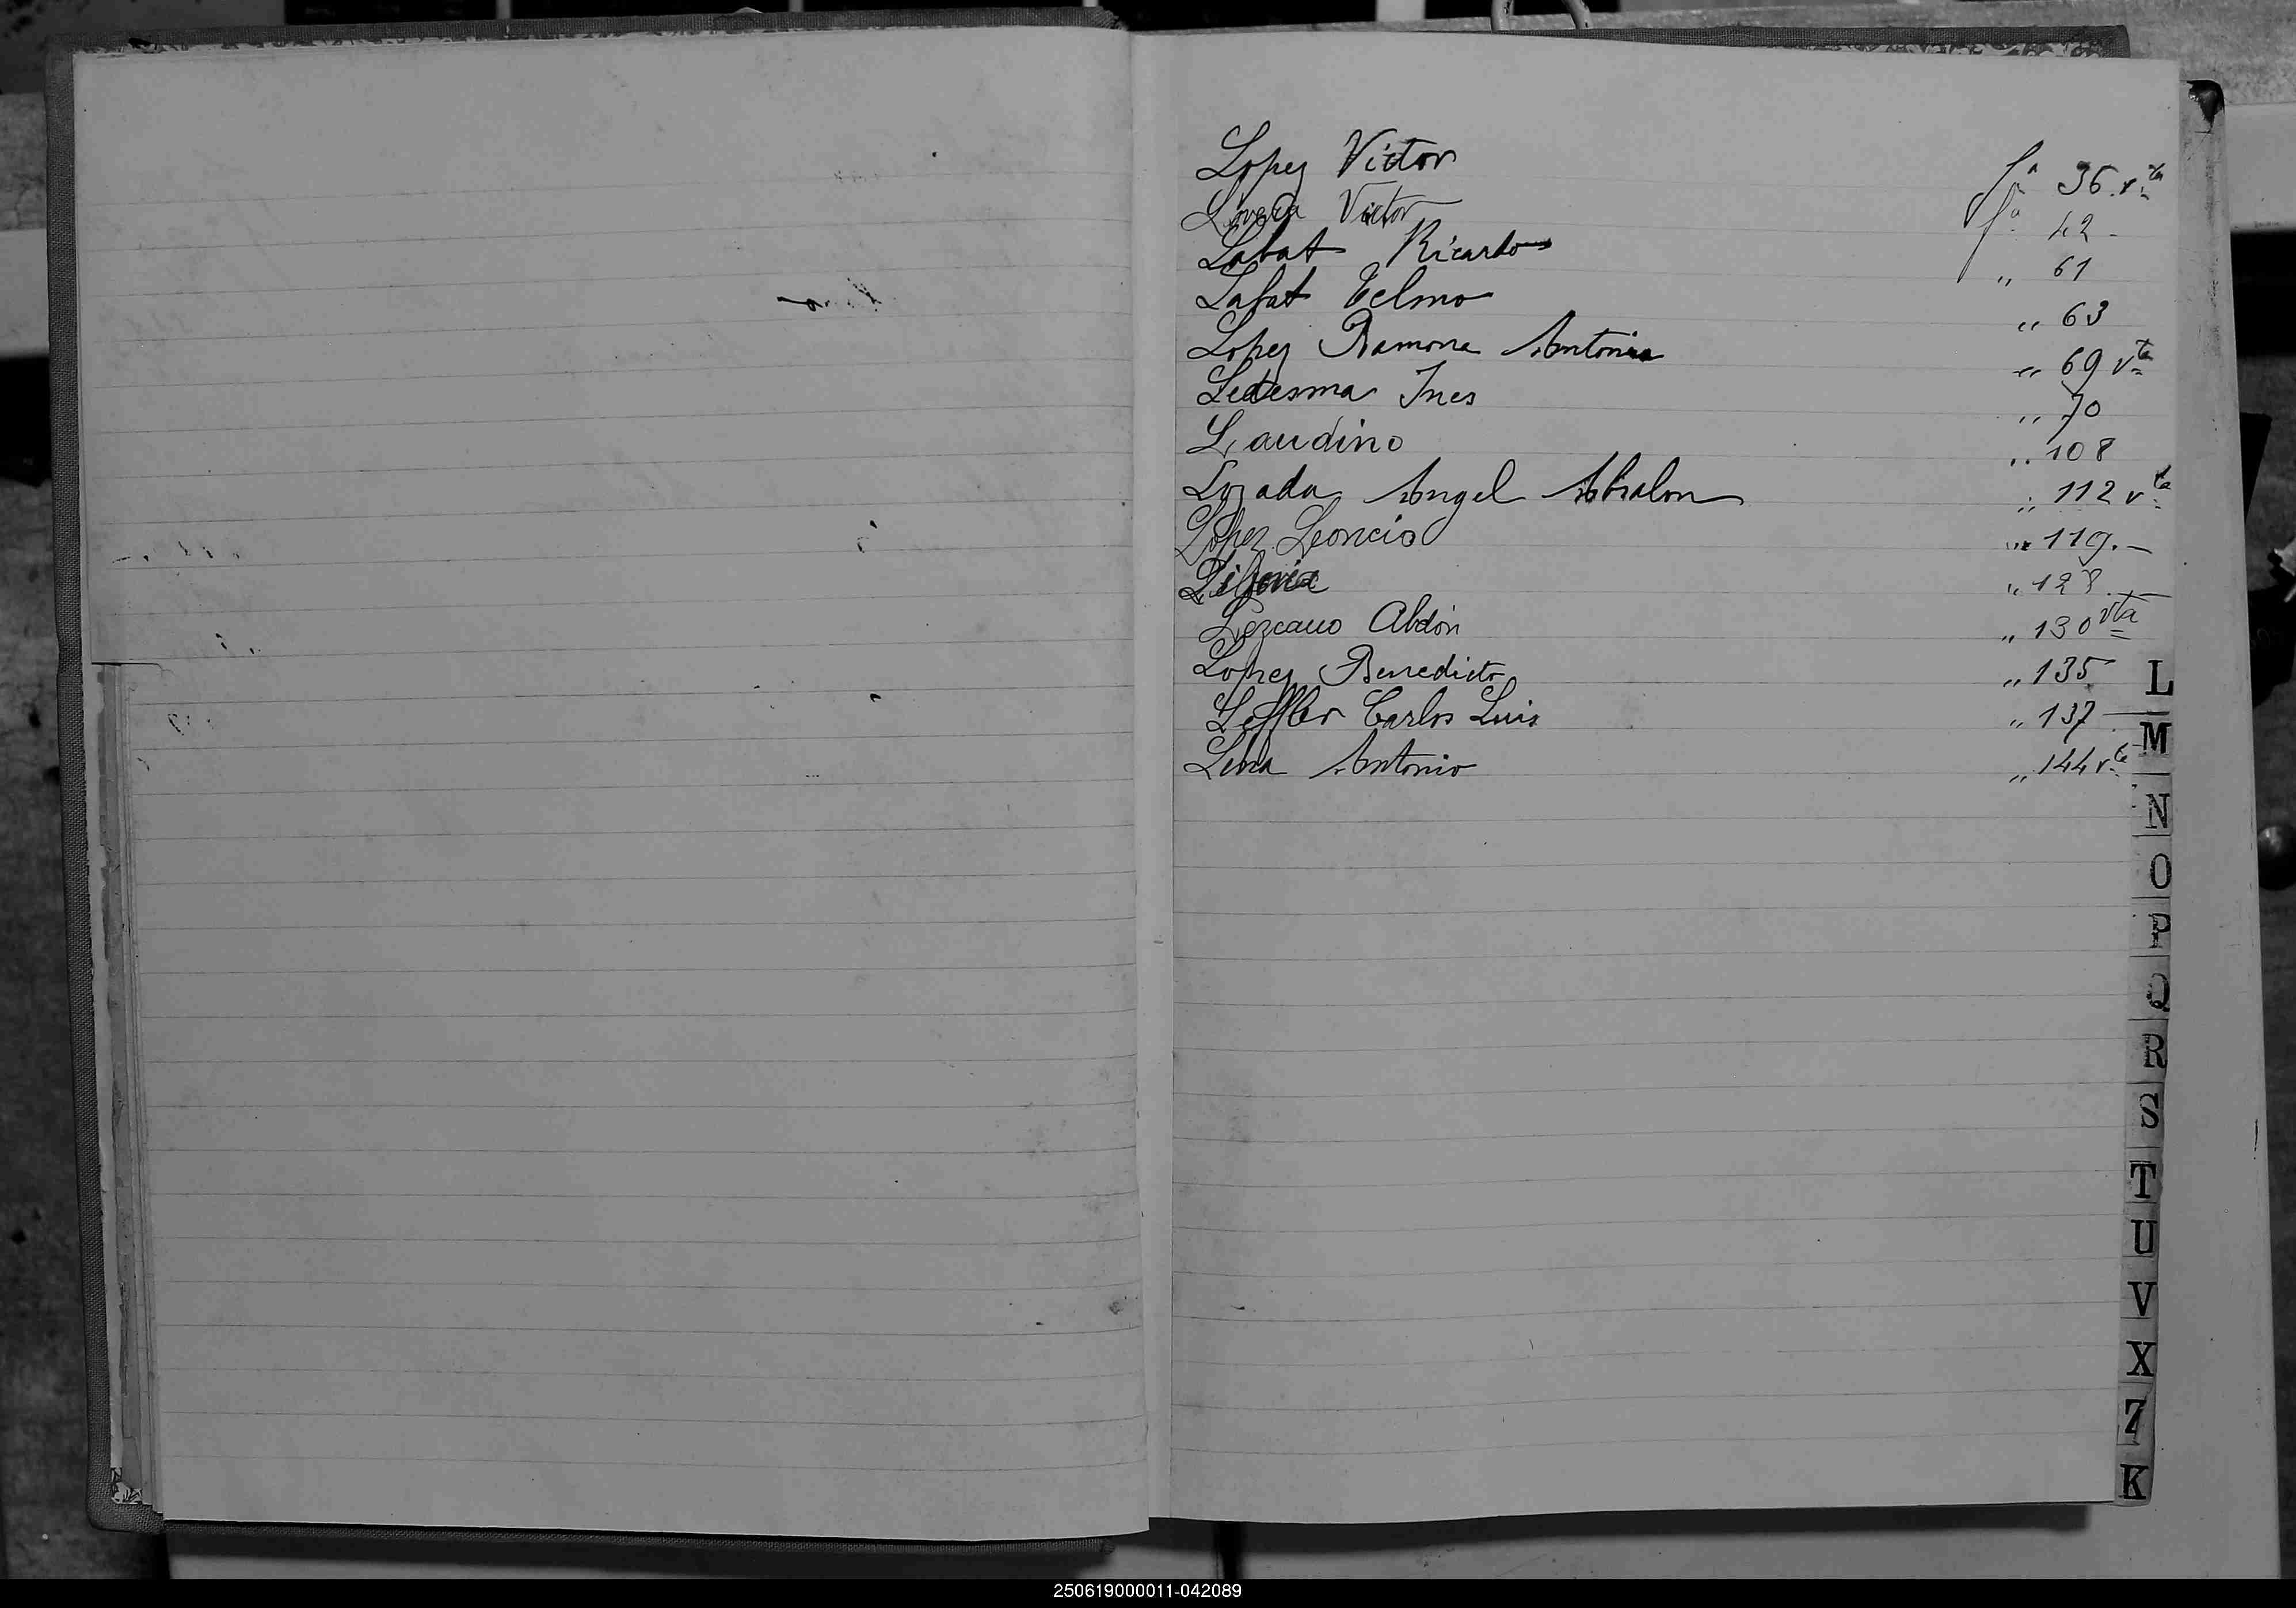 Lopez Victor fª 36.vta
Victor fª 42 -
Labat Ricardo " 61
Labat Telmo " 63
Lopez Ramona Antonia " 69 vta
Ledesma Ines " 70
Laudino " 108
Lozada Angel Absalon " 112 vta
Lopez Leoncio " 119.-
" 128.-
Lezcano Abdón " 130 vta
Lopez Benedicto " 135
Leffler Carlos Luis " 137
Antonio " 144 vta
L
M
N
O
P
Q
R
S
T
U
V
X
Z
K
250619000011-042089